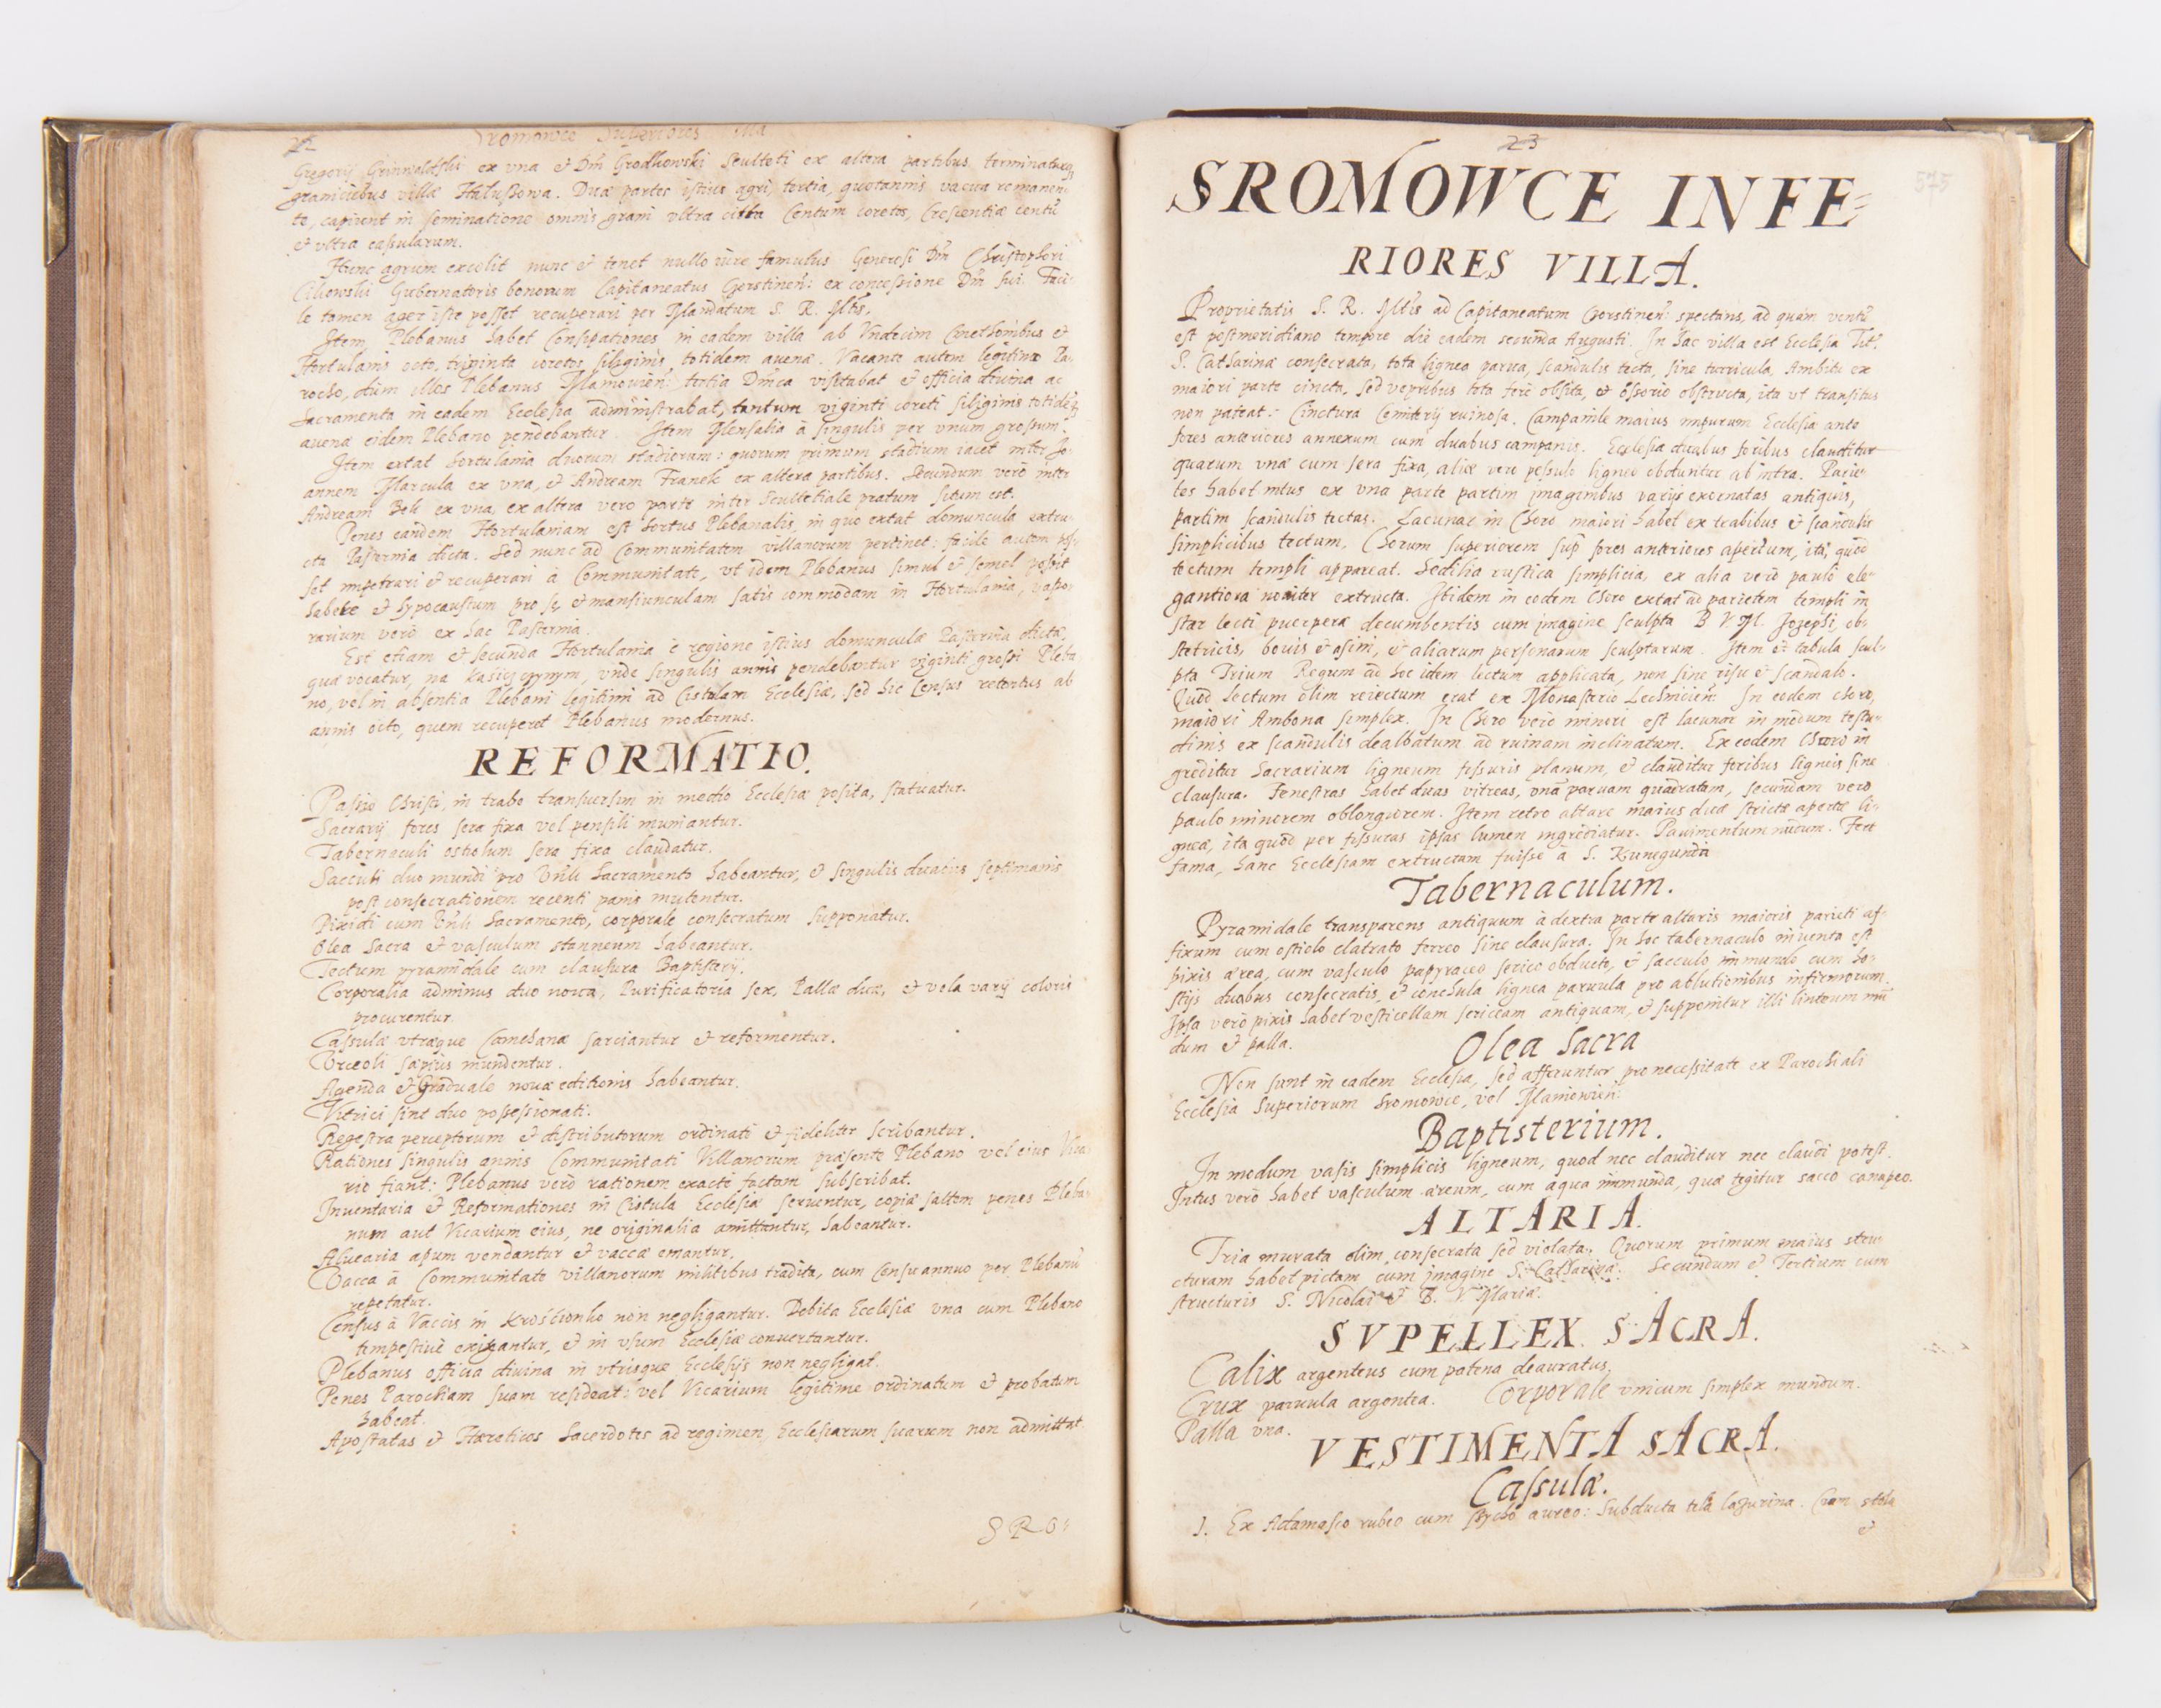 22
Sromowce Superiores Villa.
Gregorij Grinwaldski ex vna & Dm̃ Grodkowski Sculteti ex altera partibus terminatur
graniciebus villæ Halußowa. Duæ partes istius agri, tertia quotannis vacua remanen-
te, capiunt in seminatione omnis grani vltra citra Centum coretos, Crescentiæ centũ
& vltra capsularum.
Hunc agrum excolit nunc & tenet nullo iure famulus Generosi Dm̃ Christophori
Cikowski Gubernatoris bonorum Capitaneatus Czorstinen: ex concessione Dm̃ sui. Faci-
le tamen ager iste posset recuperari per Mandatum S. R. Mtis.
Item Plebanus habet Consipationes in eadem villa ab Vndecim Cmethonibus &
Hortulanis octo, triginta coretos siliginis totidem auenæ. Vacante autem legitimo Pa-
rocho, dum illos Plebanus Maniowien: tertia Dm̃ca visitabat & officia diuina ac
Sacramenta in eadem Ecclesia administrabat, tantum viginti coreti siliginis totidẽ
auenæ eidem Plebano pendebantur. Item Mensalia à singulis per vnum grossum.
Item extat hortulania duorum stadiorum: quorum primum stadium iacet inter Jo-
annem Marcula ex vna, & Andream Franek ex altera partibus. Secundum verò inter
Andream Bek ex vna, ex altera vero parte inter Scultetiale pratum situm est.
Penes eandem Hortulaniam est hortus Plebanalis, in quo extat domuncula extru-
cta Pasternia dicta. Sed nunc ad Communitatem villanorum pertinet: facile autem pos-
set impetrari & recuperari à Communitate, vt idem Plebanus simul & semel possit
habere & hypocaustum pro se & mansiunculam satis commodam in Hortulania,
rarium verò ex hac Pasternia.
Est etiam & secunda Hortulania è regione istius domunculæ Pasternia dictæ,
quæ vocatur, na vnde singulis annis pendebantur viginti grossi Pleba
no, vel in absentia Plebani legitimi ad Cistulam Ecclesiæ, sed hic Census retentus ab
annis octo, quem recuperet Plebanus modernus.
REFORMATIO.
Passio Christi, in trabe transuersim in medio Ecclesiæ posita, statuatur.
Sacrarij fores sera fixa vel pensili muniantur.
Tabernaculi ostiolum sera fixa claudatur.
Sacculi duo mundi pro Vñli Sacramento habeantur, & singulis duabus septimanis
post consecrationem recenti panis mutentur.
Pixidi cum Vñli Sacramento, corporale consecratum supponatur.
Olea Sacra & vasculum stanneum habeantur.
Tectum pyramidale cum clausura Baptisterij.
Corporalia adminus duo noua, Purificatoria sex, Pallæ duæ, & vela varij coloris
procurentur.
Casulæ vtræque Camehanæ sarciantur & reformentur.
Vrceoli sæpius mundentur.
Agenda & Graduale nouæ editionis habeantur.
Vitrici sint duo possessionati.
Regestra perceptorum & distributorum ordinatè & fideliter scribantur.
Rationes singulis annis Communitati Villanorum præsente Plebano vel eius Vica-
rio fiant: Plebanus verò rationem exactè factam subscribat.
Inuentaria & Reformationes in Cistula Ecclesiæ seruentur, copiæ saltem penes Pleba-
num aut Vicarium eius, ne originalia amittantur, habeantur.
Aluearia apum vendantur & vaccæ emantur.
Vacca à Communitate villanorum militibus tradita, cum Censu annuo per Plebanũ
repetatur.
Census à Vaccis in Krościonko non negligantur. Debita Ecclesiæ vna cum Plebano
tempestiuè exigantur, & in vsum Ecclesiæ conuertantur.
Plebanus officia diuina in vtrisque Ecclesijs non negligat.
Penes Parochiam suam resideat: vel Vicarium legitime ordinatum & probatum
habeat.
Apostatas & Hæreticos Sacerdotes ad regimen Ecclesiarum suarum non admittat.
SRO-
23
575
SROMOWCE INFE-
RIORES VILLA.
Proprietatis S. R. Mtis ad Capitaneatum Czorstinen: spectans, ad quam ventũ
est postmeridiano tempore die eadem secunda Augusti. In hac villa est Ecclesia Tit:
S. Catharinæ consecrata, tota lignea parua, scandulis tecta, sine turricula. Ambitu ex
maiori parte cincta, sed vepribus tota ferè obsita, & ossorio obstructa, ita vt transitus
non pateat. Cinctura Cemiterij ruinosa. Campanile maius impurum Ecclesiæ ante
fores anteriores annexum cum duabus campanis. Ecclesia duabus foribus clauditur
quarum vnæ cum sera fixa, aliæ vero pessulo ligneo obduntur ab intra. Parie-
tes habet intus ex vna parte partim imaginibus varijs exornatas antiquis,
partim scandulis tectas. Lacunar in Choro maiori habet ex trabibus & scandulis
simplicibus tectum. Chorum superiorem sup fores anteriores apertum, ita, quod
tectum templi appareat. Sedilia rustica simplicia, ex alia verò paulò ele-
gantiora noviter extructa. Ibidem in eodem Choro extat ad parietem templi in
star lecti puerperæ decumbentis cum imagine sculpta B V M. Jozephi, ob-
stetricis, bouis & asini, & aliarum personarum sculpturum. Item & tabula scul-
pta Trium Regum ad hoc idem lectum applicata, non sine risu & scandalo.
Quod Lectum olim reiectum erat ex Monasterio Lechnicien: In eodem choro
maiori Ambona simplex. In Choro verò minori est lacunar in modum testu-
dinis ex scandulis dealbatum ad ruinam inclinatum. Ex eodem Choro in
greditur Sacrarium ligneum fissuris planum, & clauditur foribus ligneis sine
clausura. Fenestras habet duas vitreas, vnã paruam quadratam, secundam verò
paulo minorem oblongiorem. Item retro altare maius duæ strictæ apertæ li-
gneæ, ita quod per fissuras ipsas lumen ingrediatur. Pauimentum nullum. Fert
fama, hanc Ecclesiam extructam fuisse à S. Kunegunda
Tabernaculum.
Pyramidale transparens antiquum à dextra parte altaris maioris parieti af-
fixum cum ostiolo clatrato ferreo sine clausura. In hoc tabernaculo inuenta est
pixis ærea, cum vasculo papyraceo serico obducto, & sacculo immundo cum ho-
stijs duabus consecratis, & conchula lignea paruula pro ablutionibus infirmorum.
Ipsa verò pixis habet vesticellam sericeam antiquam, & supponitur illi linteum mũ
dum & palla.
Olea Sacra
Non sunt in eadem Ecclesia, sed afferuntur pro necessitate ex Parochiali
Ecclesia Superiorum Sromowce, vel Maniowien:
Baptisterium.
In modum vasis simplicis ligneum, quod nec clauditur nec claudi potest.
Intus verò habet vasculum æreum, cum aqua immunda, quæ tegitur sacco canapeo.
ALTARIA.
Tria murata olim consecrata sed violata. Quorum primum maius stru-
cturam habet pictam cum imagine S. Catharinæ. Secundum & Tertium cum
structuris S. Nicolai & B. V Mariæ.
SVPELLEX SACRA.
Calix argenteus cum patena deauratus.
Crux paruula argentea. Corporale vnicum simplex mundum.
Palla vna.
VESTIMENTA SACRA.
Casulæ.
1. Ex Adamasco rubeo cum aureo: Subducta tela lazurina. Cum stola
&